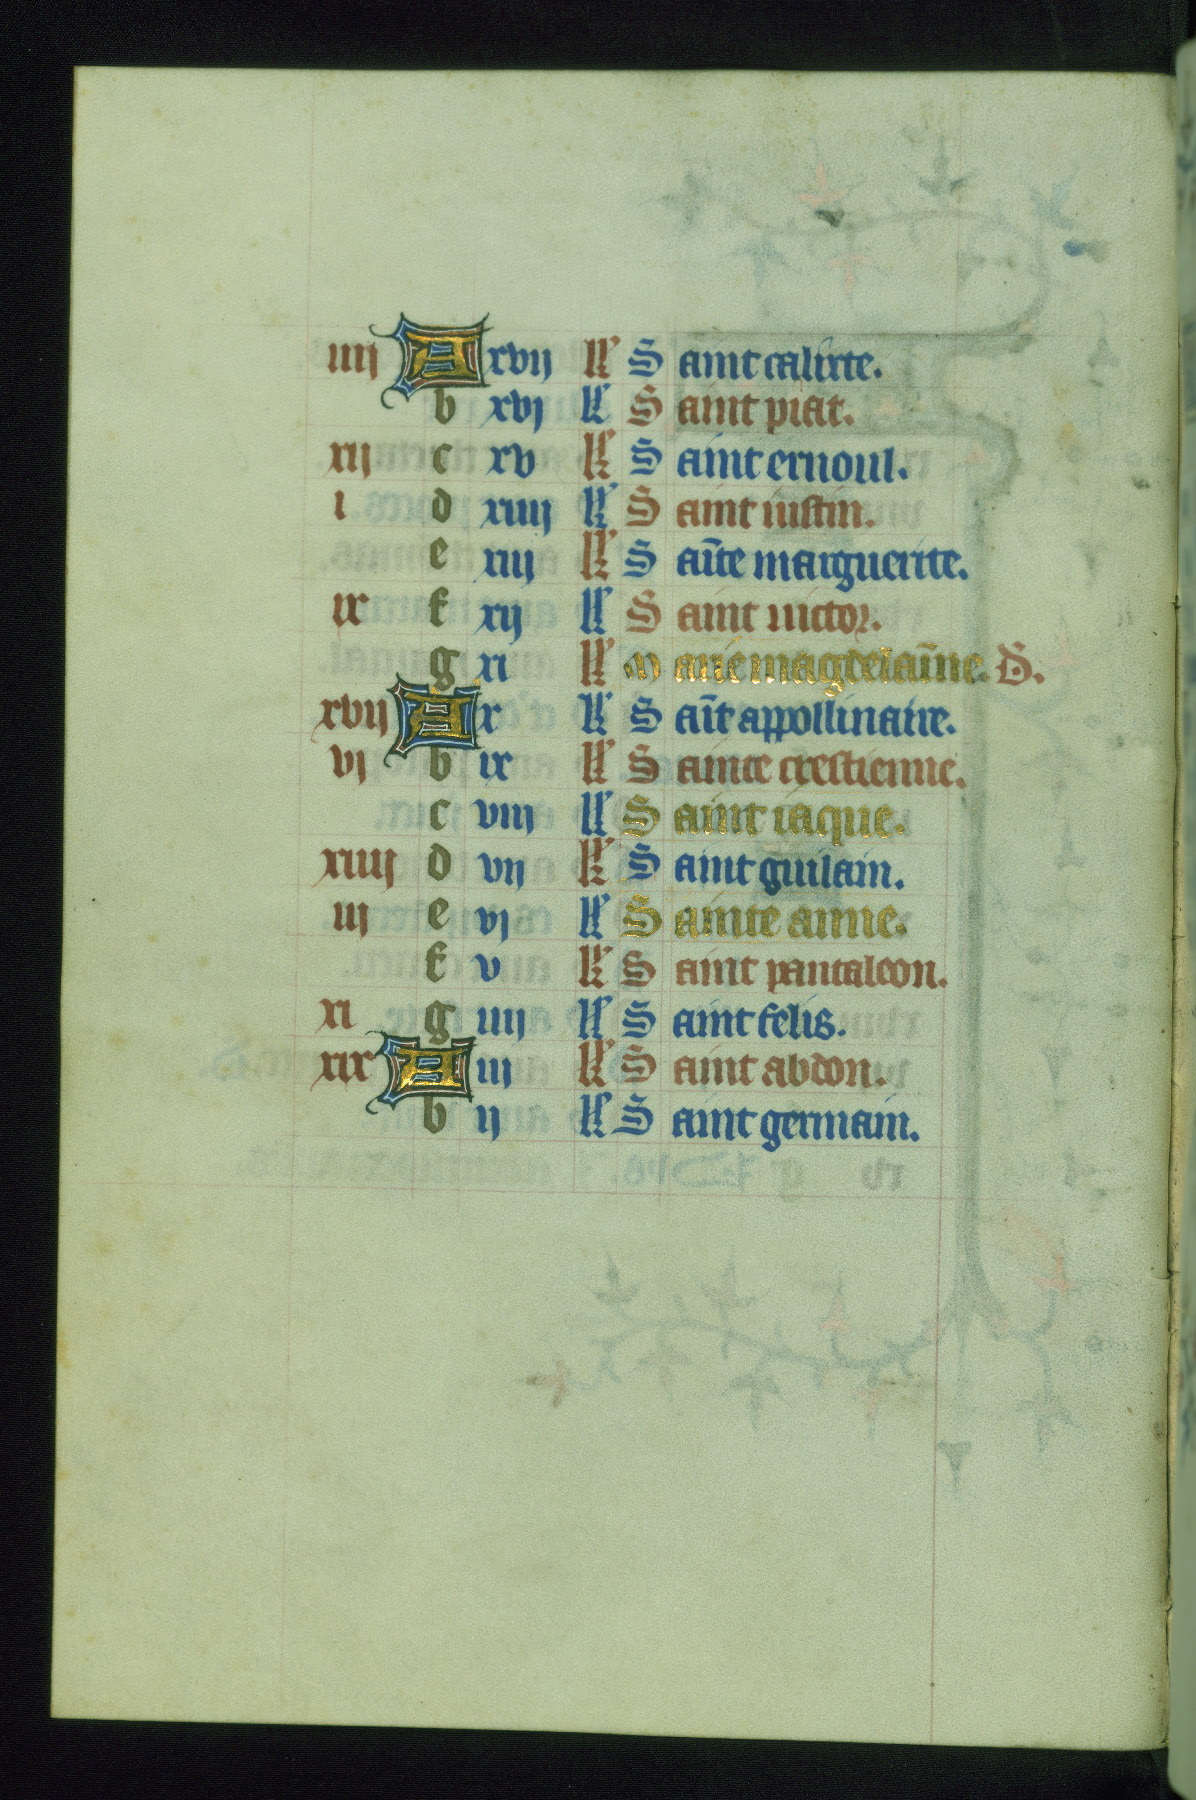 iiij A xvij kł Saint calixte.
b xvj kł Saint piat.
xij c xv kł Saint ernoul.
i d xiiij kł Saint iustin.
e xiij kł Saīte marguerite.
ix f xij kł Saint uictor.
g xi kł Marie magdelaīne. D.
xvij A x kł Saīt appollinaire.
vj b ix kł Sainte crestienne.
c viij kł Saint iaque.
xiiij d vij kł Saint guilain.
iij e vj kł Sainte anne.
f v kł Saint pantaleon.
xi g iiij kł Saint felis.
xix A iij kł Saint abdon.
b ij kł Saint germain.